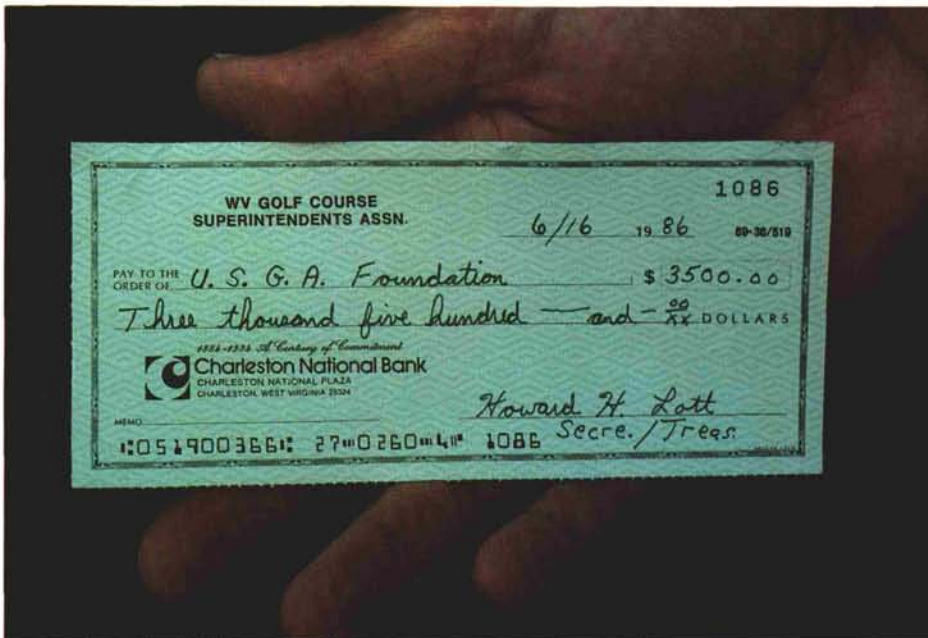 1086
WV GOLF COURSE
SUPERINTENDENTS ASSN.
6/16 19 86 69-36/519
PAY TO THE
ORDER OF U. S. G. A. Foundation $ 3500.00
Three thousand five hundred — and — 00/XX DOLLARS
1884-1984 A Century of Commitment
Charleston National Bank
CHARLESTON NATIONAL PLAZA
CHARLESTON, WEST VIRGINIA 25324
Howard H. Lott
MEMO
Secre. / Treas.
⑆051900366⑆ 27⑈0260⑈4⑈ 1086